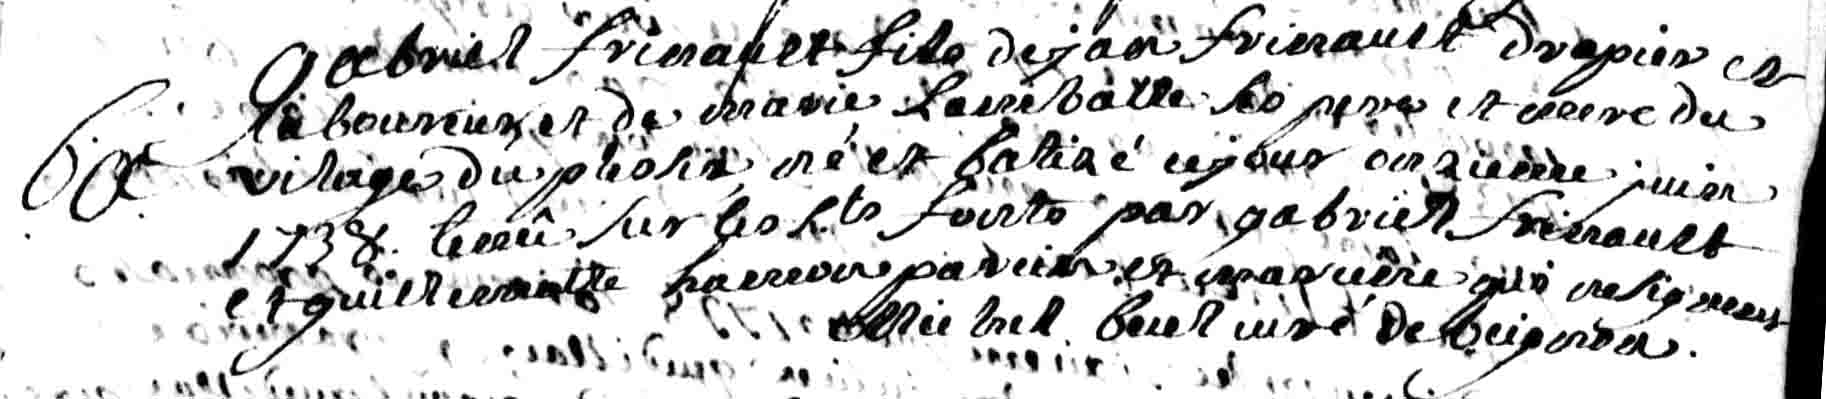 gabriel frinault fils de jan frinault drapier et
laboureur et de marie lambatte ses pere et mere du
vilage du plesis né et batizé ce jour onzieme juin
1738. tenû sur les s.ts fonts par gabriel frinault
et guillemette hamon parein et mareine qui ne signent
Michel curé de